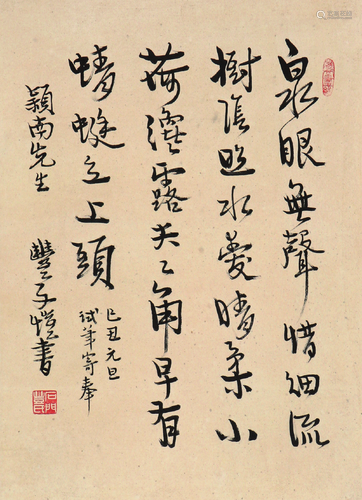 泉眼無聲惜細流
樹陰照水愛晴柔小
荷纔露尖〻角早有
蜻蜓立上頭
己丑元旦
試筆寄奉
穎南先生
豐子愷書
石門
豐氏